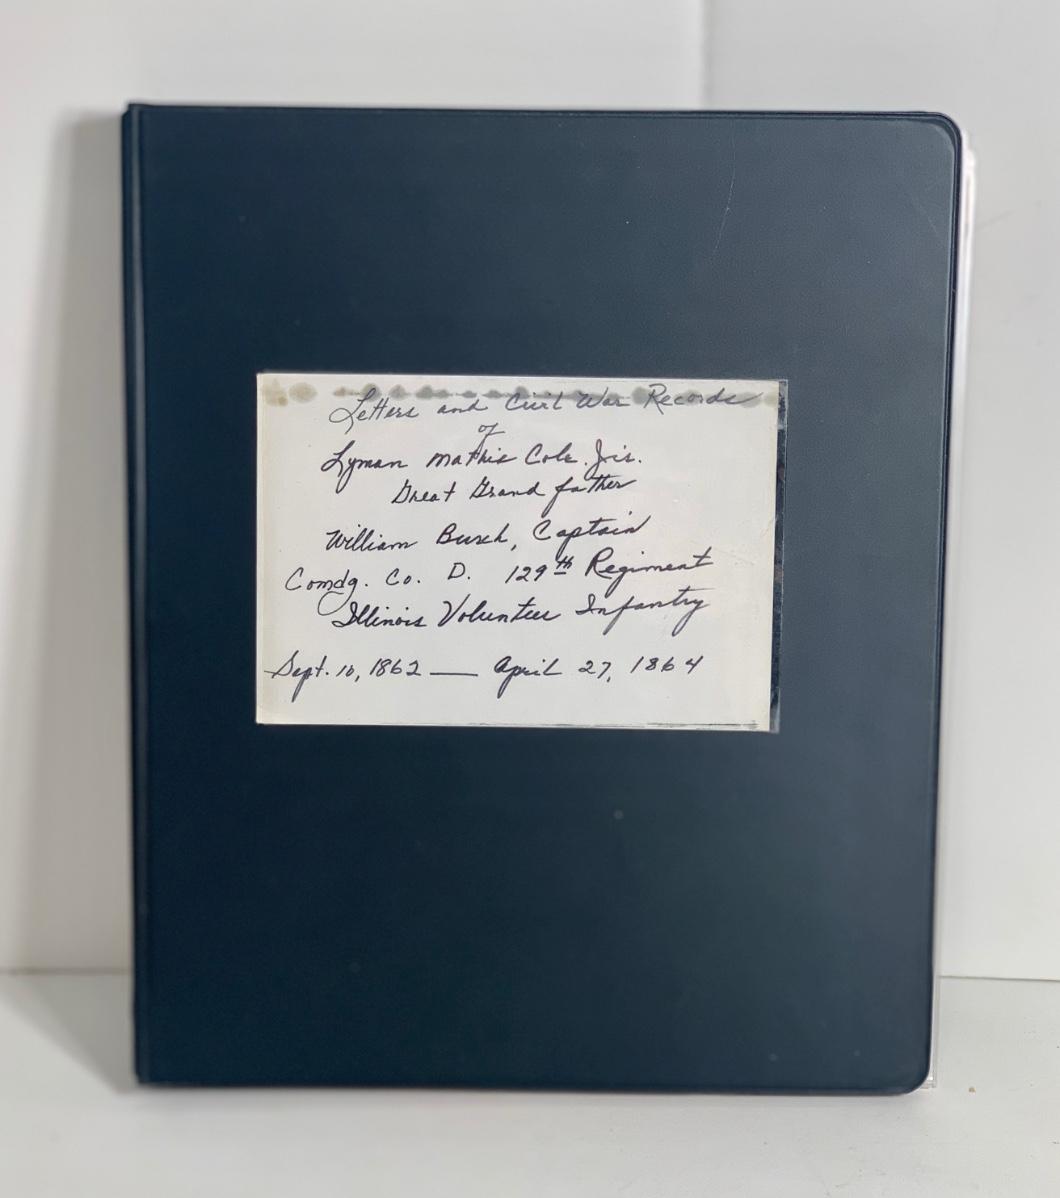 Letters and Civil War Records
of
Lyman Mathis Cole. Jr's.
Great Grand father
William Burch, Captain
Comdg. Co. D. 129th Regiment
Illinois Volunteer Infantry
Sept. 10, 1862 — April 27, 1864